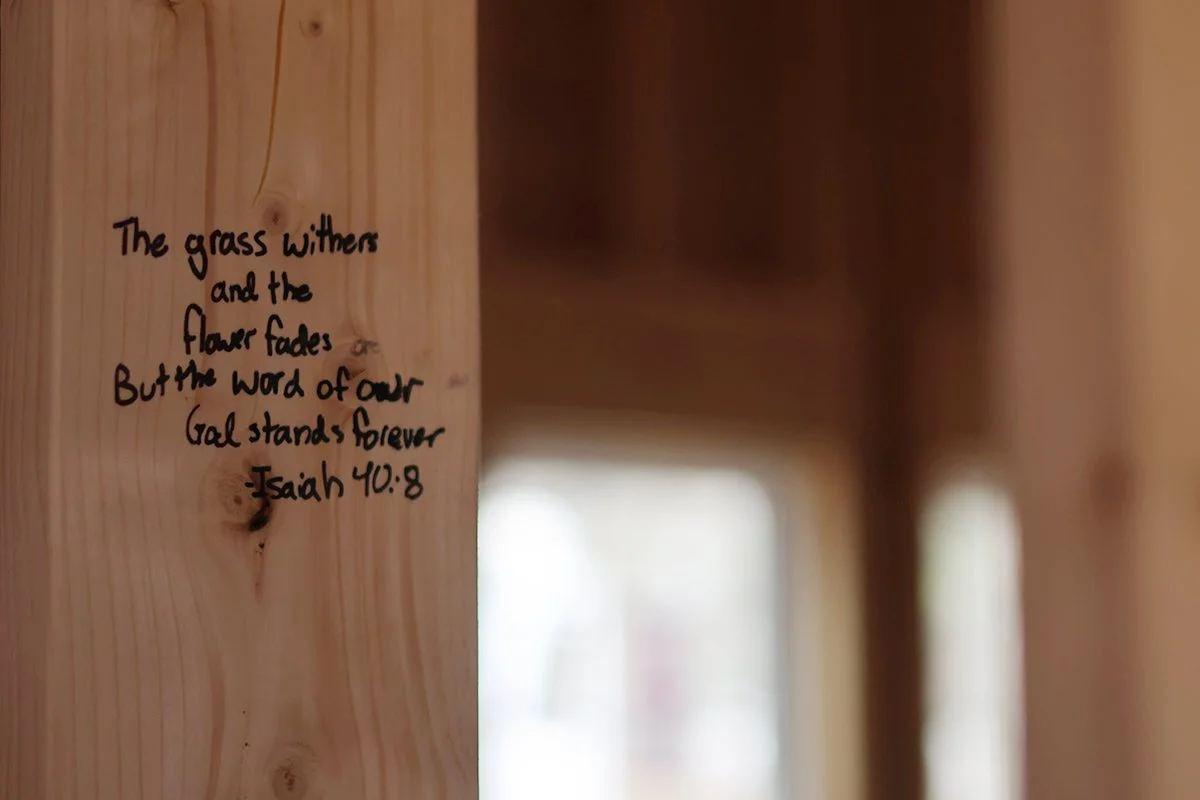 The grass withers
and the
flower fades
But the word of our
God stands forever
-Isaiah 40:8